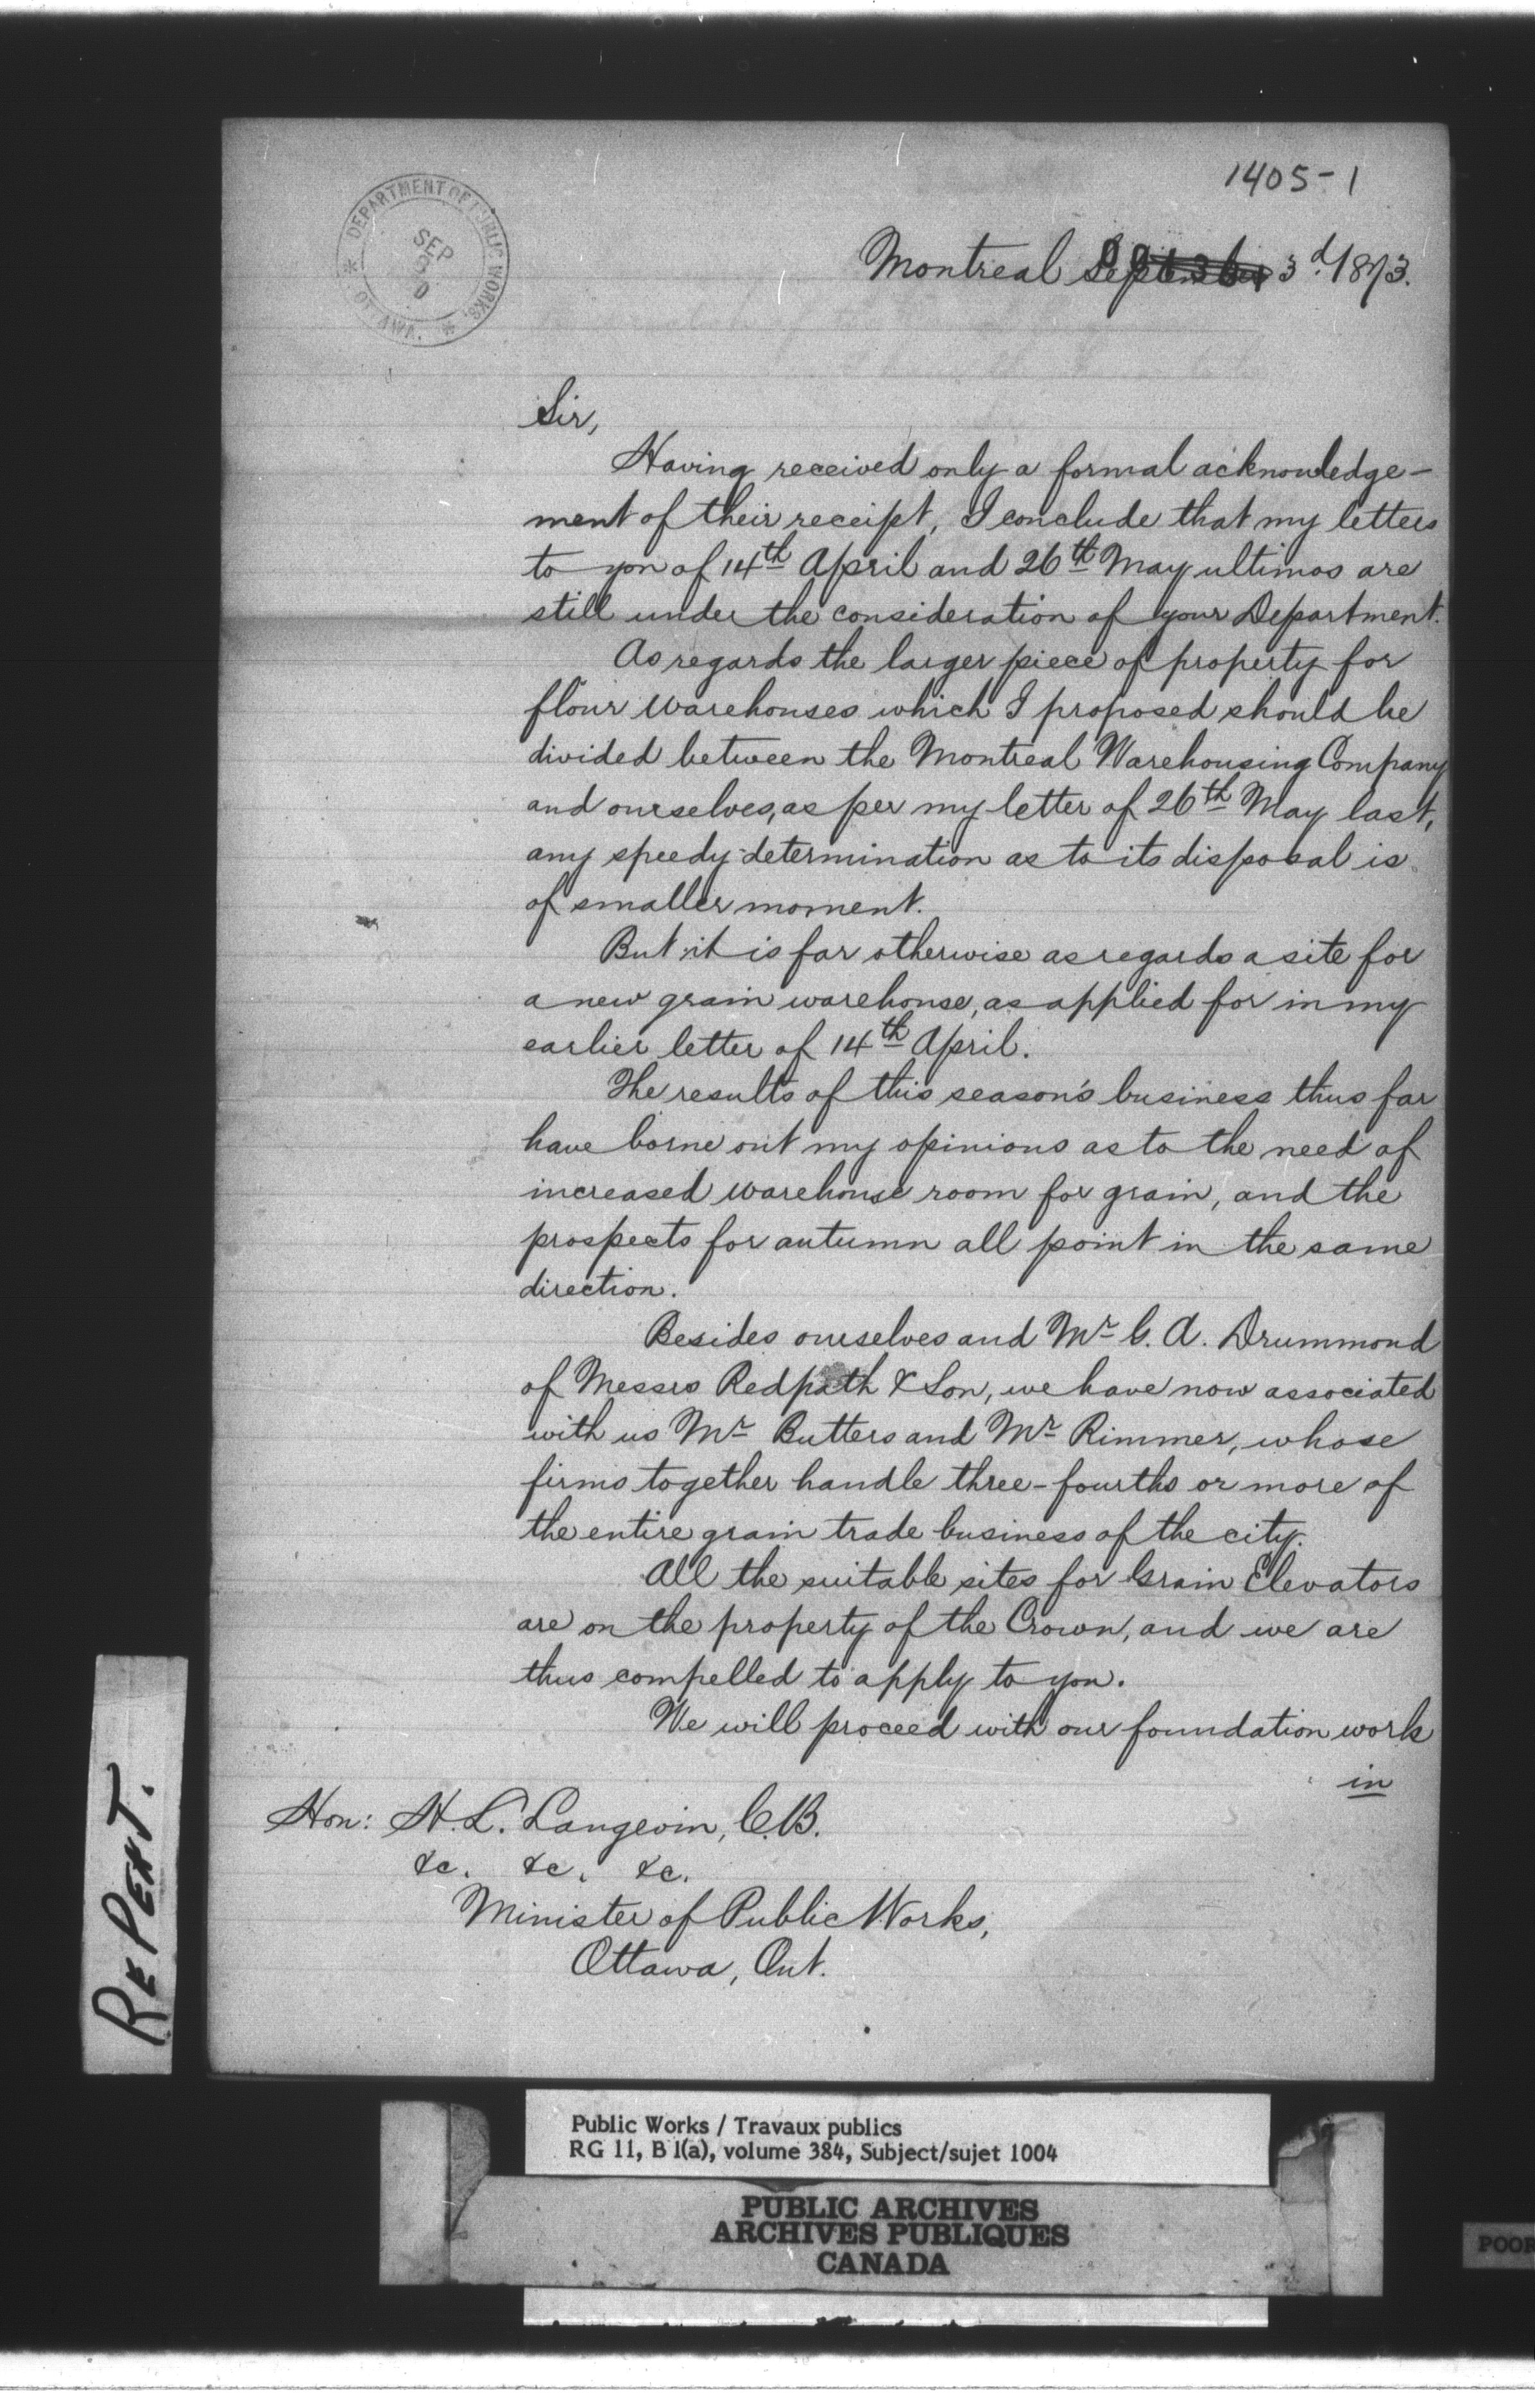 1405-1
DEPARTMENT OF PUBLIC WORKS,
SEP
OTTAWA.
Montreal September 3d. 1873.
Sir,
Having received only a formal acknowledge-
ment of their receipt, I conclude that my letters
to you of 14th April and 26th May ultimos are
still under the consideration of your Department.
As regards the larger piece of property for
flour warehouses which I proposed should be
divided between the Montreal Warehousing Company
and ourselves, as per my letter of 26th May last,
any speedy determination as to its disposal is
of smaller moment.
But it is far otherwise as regards a site for
a new grain warehouse, as applied for in my
earlier letter of 14th April.
The results of this season's business thus far
have borne out my opinions as to the need of
increased warehouse room for grain, and the
prospects for autumn all point in the same
direction.
Besides ourselves and Mr G. A. Drummond
of Messrs Redpath & Son, we have now associated
with us Mr Butters and Mr Rimmer, whose
firms together handle three-fourths or more of
the entire grain trade business of the city.
All the suitable sites for Grain Elevators
are on the property of the Crown, and we are
thus compelled to apply to you.
We will proceed with our foundation work
in
Hon: H. L. Langevin, C.B.
&c. &c. &c.
Minister of Public Works,
Ottawa, Ont.
REPENT.
Public Works / Travaux publics
RG 11, B 1(a), volume 384, Subject/sujet 1004
PUBLIC ARCHIVES
ARCHIVES PUBLIQUES
CANADA
POOR